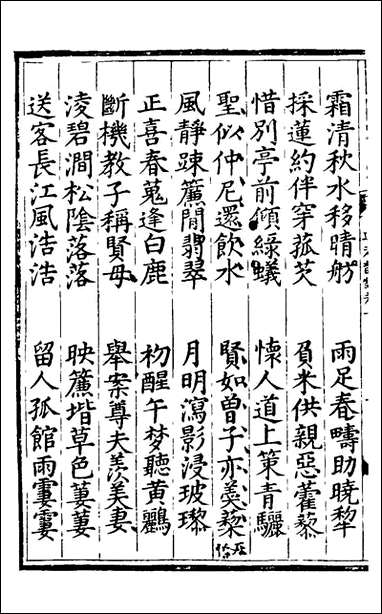 霜清秋水移晴舫　雨足春疇助曉犂
採蓮約伴穿菰芡　負米供親惡藿藜
惜別亭前傾綠蟻　懷人道上策青驪
聖似仲尼還飲水　賢如曽子亦羮藜
風靜踈簾閒翡翠　月明瀉影浸玻瓈
正喜春蒐逢白鹿　初醒午梦聽黃鸝
斷機教子稱賢母　舉案尊夫羡美妻
淩碧澗松陰落落　映簾堦草色萋萋
送客長江風浩浩　留人孤館雨霎霎